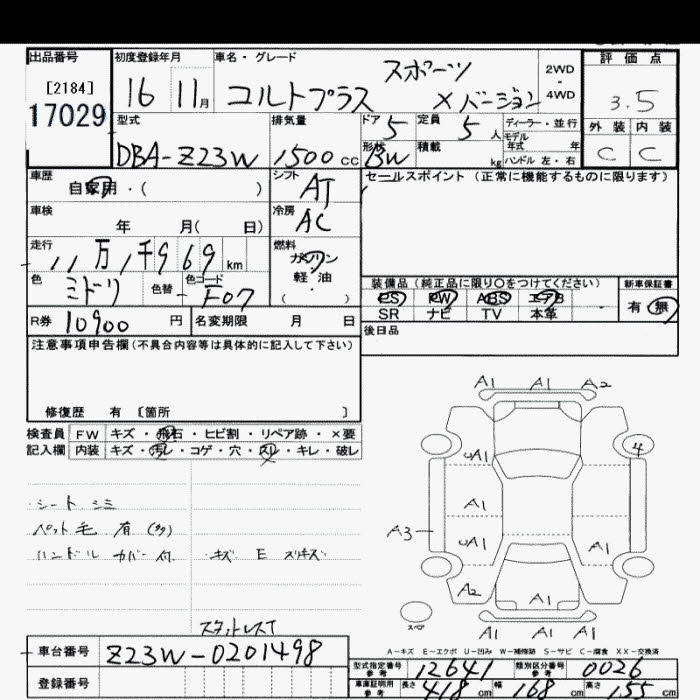 出品番号 初度登録年月 車名・グレード 評価点
[2184] スポーツ 2WD
17029 16 11月 コルトプラス ×バージョン 4WD 3.5
型式 排気量 ドア 定員 ディーラー・並行 外装 内装
5 5人 モデル年式 年
DBA-Z23W 1500cc 形状 BW 積載 kg ハンドル 左・右 C C
車歴 自家用・( ) シフト AT セールスポイント (正常に機能するものに限ります)
車検 年 月( 日) 冷房 AC
走行 11万1千969km 燃料 ガソリン
軽・油
( )
色 ミドリ 色替 色コード F07
装備品(純正品に限り○をつけてください) 新車保証書
PS PW ABS エアB 有 無
R券 10900円 名変期限 月 日 SR ナビ TV 本革
後日品
注意事項申告欄(不具合内容等は具体的に記入して下さい)
修復歴 有 〔箇所 〕
検査員 FW キズ・飛石・ヒビ割・リペア跡・×要
記入欄 内装 キズ・汚レ・コゲ・穴・スレ・キレ・破レ
A1 A1 A2
4
uA1
シート シミ A1
ペット毛 有(多) A3
ハンドルカバー付 キズ E スリキズ uA1 A1
A2 A1
スペア
スタットレスT A1 A1
A-キズ E-エクボ U-凹み W-補修跡 S-サビ C-腐食 XX-交換済
車台番号 Z23W-0201498
型式指定番号 参考 12641 類別区分番号 参考 0026
登録番号 車庫証明用 参考 長さ 418cm 幅 168cm 高さ 155cm